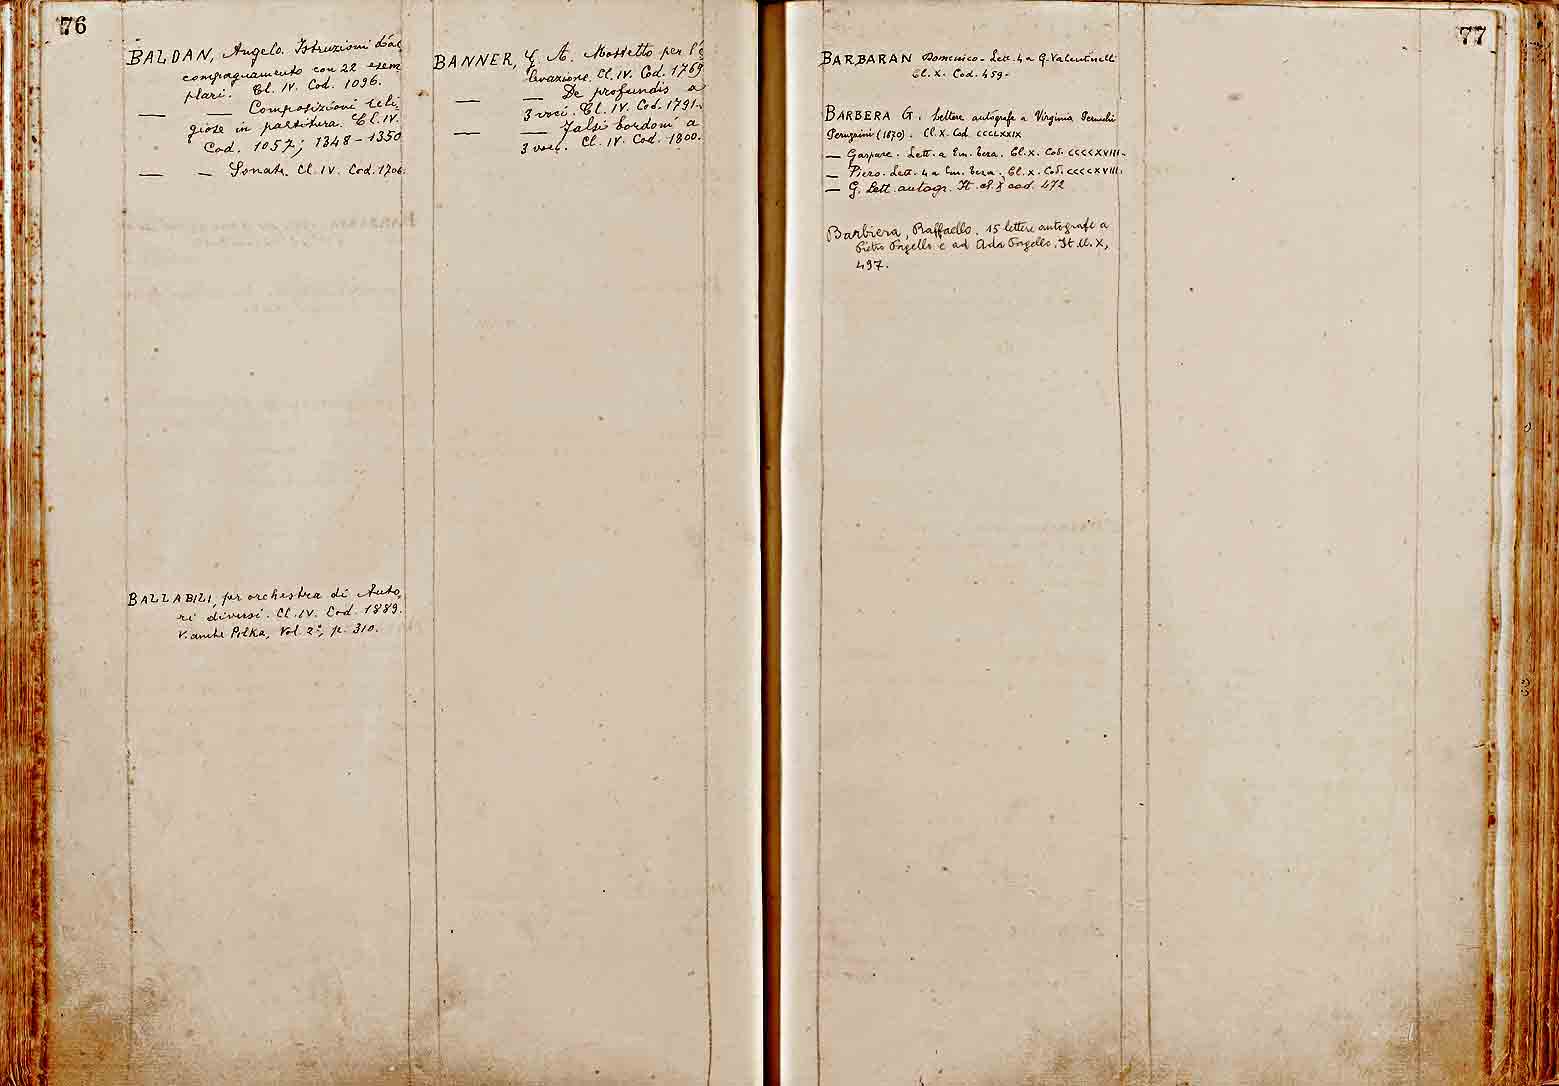 76
BALDAN, Angelo. Istruzioni d'ac
compagnamento con 22 esem
plari. Cl. IV. Cod. 1096.
— — Composizioni reli
giose in partitura. Cl. IV.
Cod. 1057; 1348-1350
— — Sonate. Cl. IV. Cod. 1706.
BALLABILI, per orchestra di Auto,
ri diversi. Cl. IV. Cod. 1889.
V. anche Polka, Vol. 2º, p. 310.
BANNER, A. Mottetto per l'e
levazione. Cl. IV. Cod. 1769
— — De profundis a
3 voci. Cl. IV. Cod. 1791.
— — Falsi bordoni a
3 voci. Cl. IV. Cod. 1800.
77
BARBARAN Domenico - Lett. 4 a G. Valentinelli
Cl. X. Cod. 459.
BARBERA G. Lettere autografe a Virginia
Perugini (1870). Cl. X. Cod. CCCLXXIX
— Gaspare. Lett. a Em. Teza. Cl. X. Cod. CCCCXVIII.
— Piero. Lett. 4 a Em. Teza. Cl. X. Cod. CCCCXVIII.
— G. Lett. autogr. It. cl. X cod. 472
Barbiera, Raffaello. 15 lettere autografe a
Pietro Pagello e ad Ada Pagello. It. Cl. X,
497.